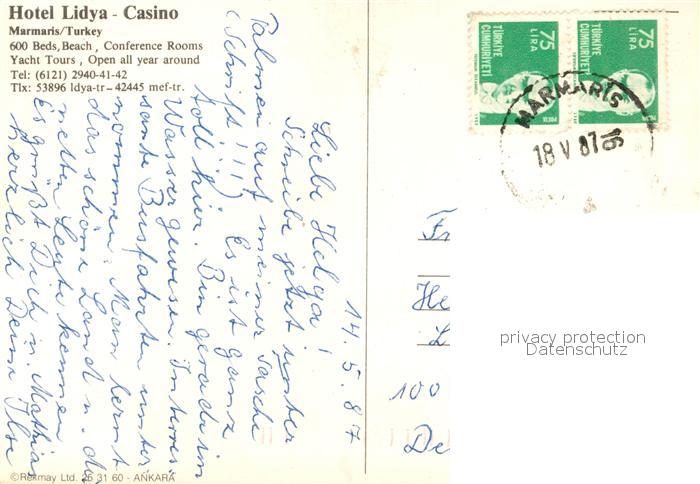 Hotel Lidya - Casino
Marmaris/Turkey
600 Beds, Beach, Conference Rooms
Yacht Tours, Open all year around
Tel: (6121) 2940-41-42
Tlx: 53896 ldya-tr - 42445 mef-tr.
14.5.87
Liebe Helga!
Schreibe jetzt unter
Palmen auf meiner Tasche
(Schrift!!!) Es ist ganz
toll hier. Bin gerade im
Wasser gewesen. Interes-
sante Busfahrten unter-
nommen. Man lernt
das schöne Land u. die
netten Leute kennen
Es grüßt Dich u. Mathias
herzlich Deine Ilse
75
LİRA
TÜRKİYE
CUMHURİYETİ
75
LİRA
TÜRKİYE
CUMHURİYETİ
MARMARİS
18 V 87 16
Fr
He
L
100
De
privacy protection
Datenschutz
©Rekmay Ltd. 25 31 60 - ANKARA